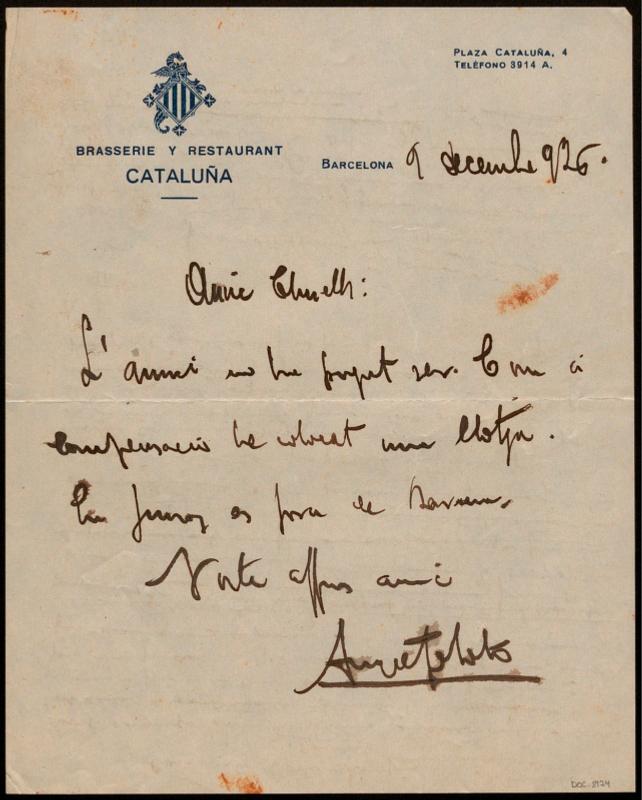 PLAZA CATALUÑA, 4
TELÉFONO 3914 A.
BRASSERIE Y RESTAURANT
CATALUÑA
BARCELONA 9 decembre 926.
Amic
L'anunci no ha pogut ser. Com a
compensació he colocat una llotja.
En es fora de
Vostre affm amic
DOC-8974